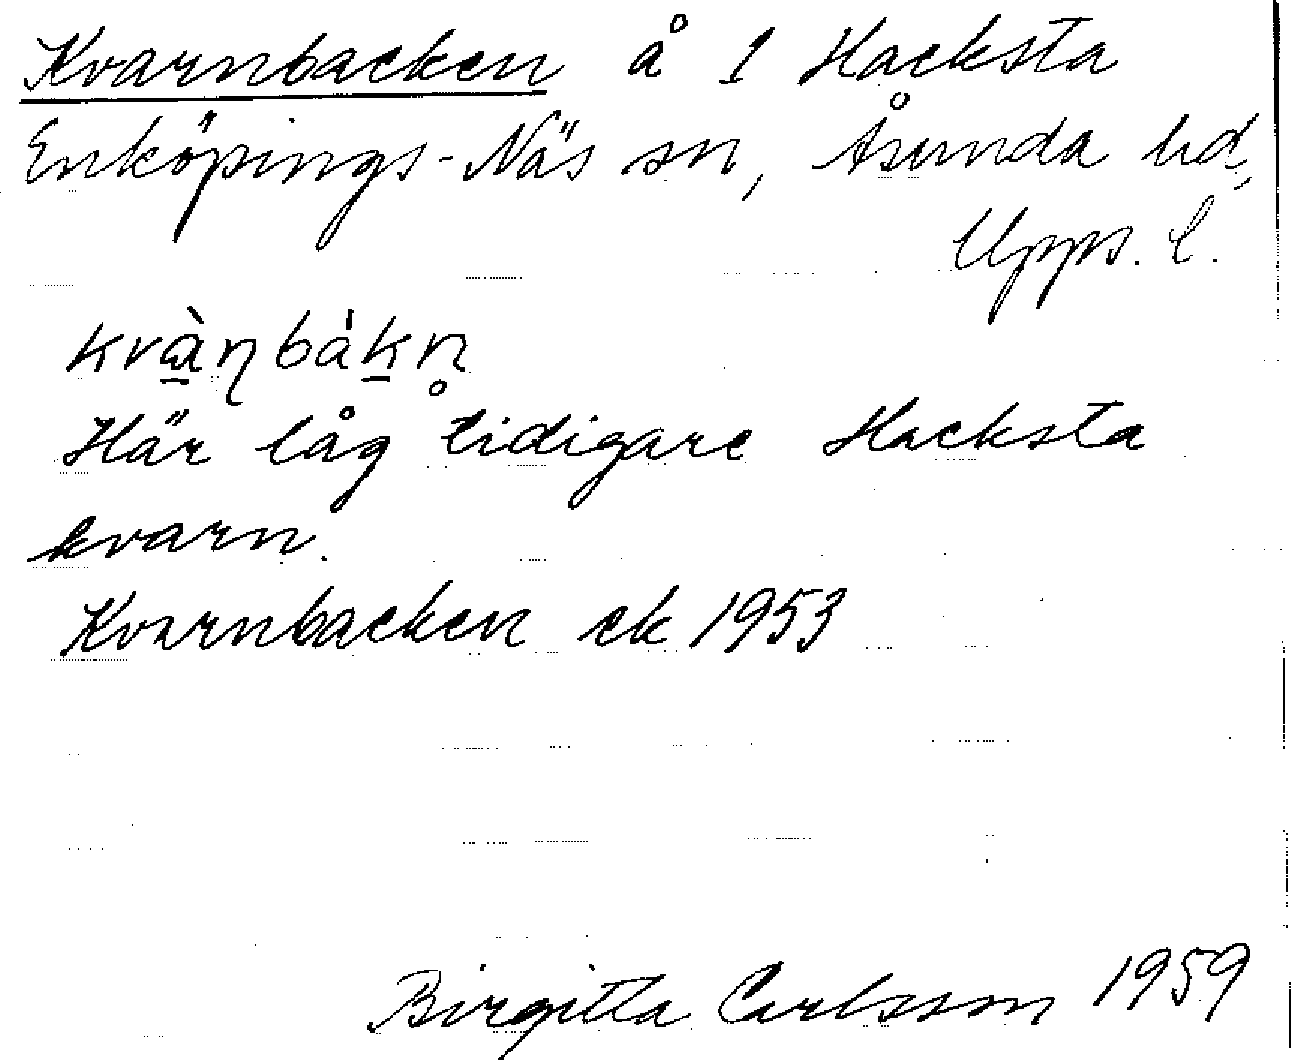 Kvarnbacken å 1 Hacksta
Enköpings-Näs sn, Åsunda hd,
Upps. l.
kvà̱ɳbàḵn̥
Här låg tidigare Hacksta
kvarn.
Kvarnbacken ek 1953
Birgitta Carlsson 1959